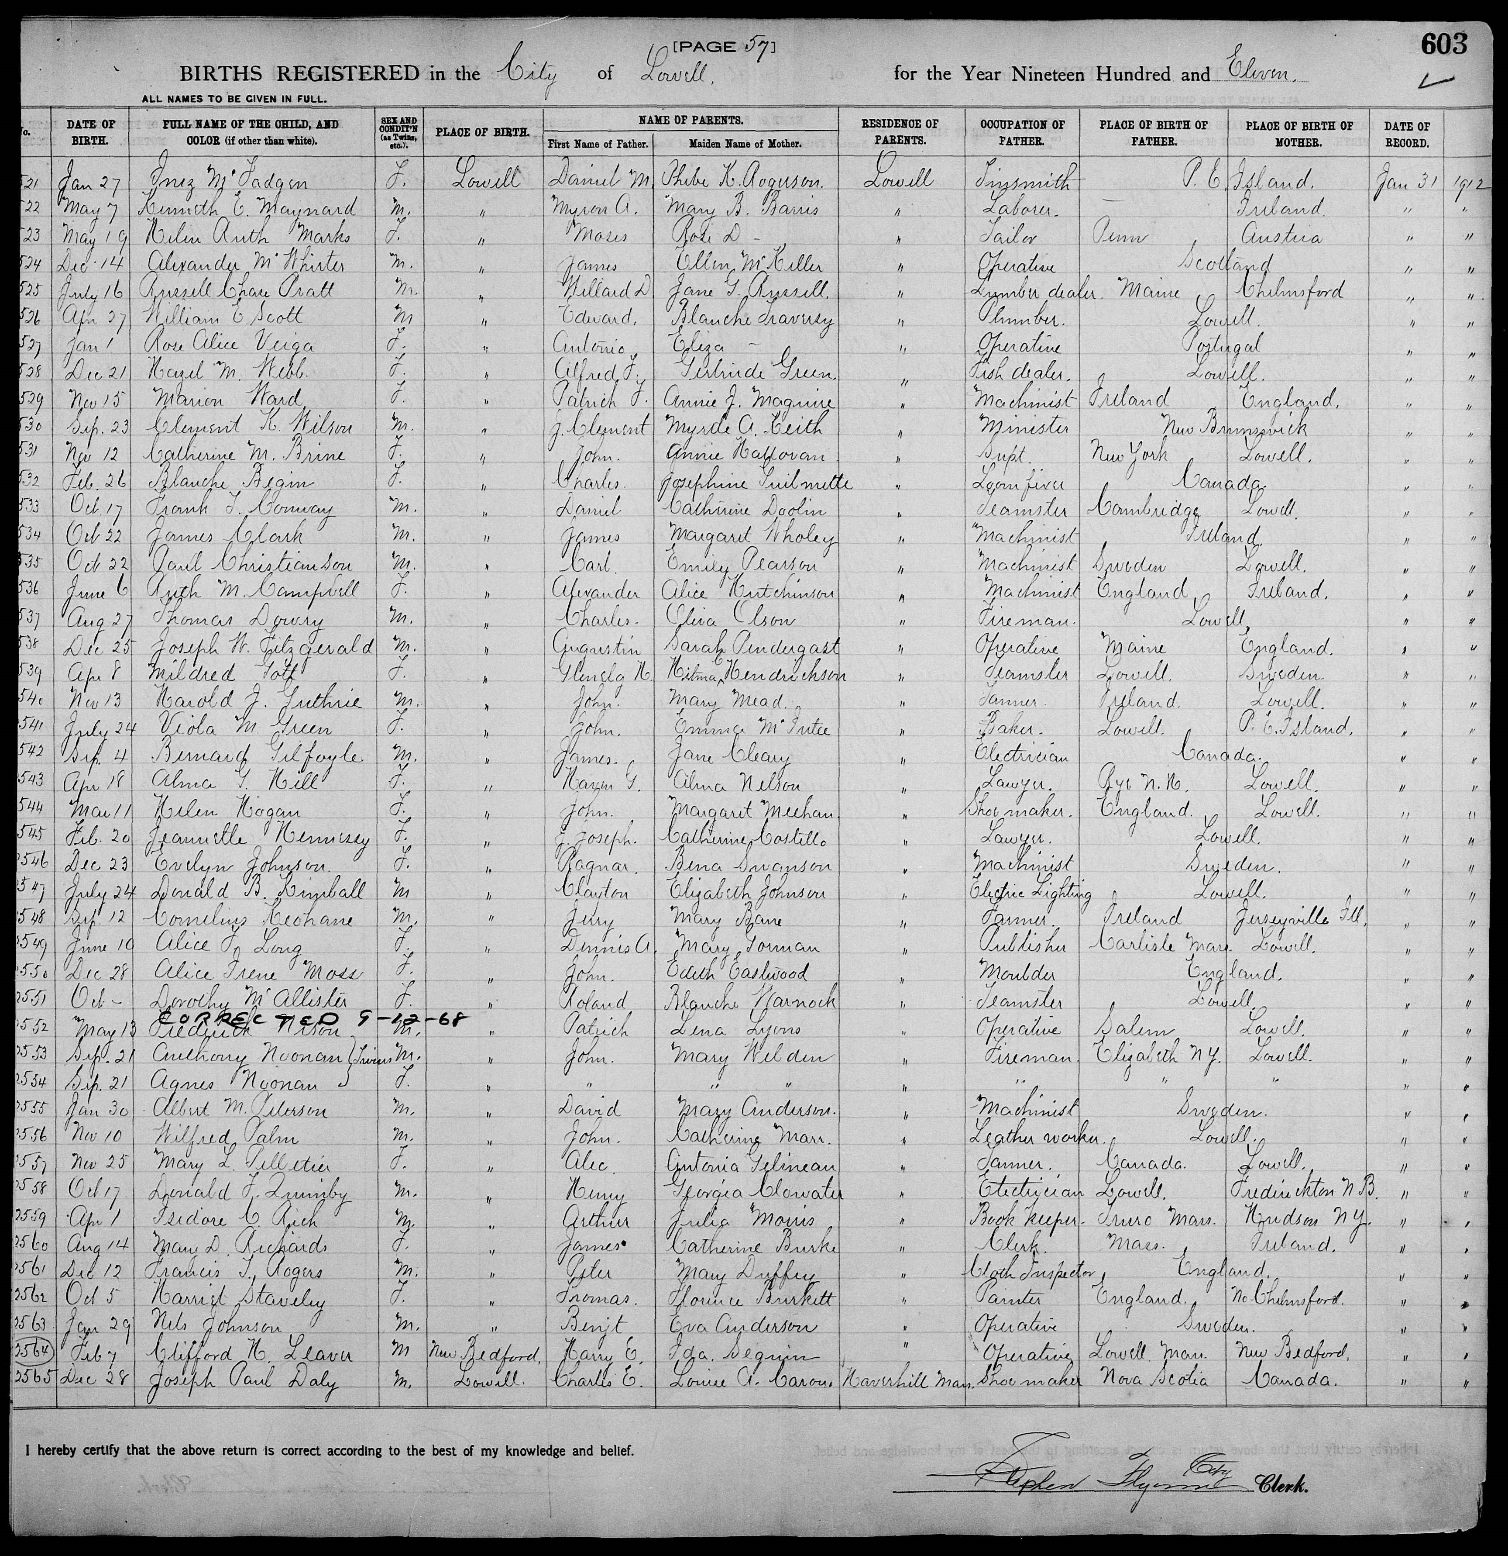 [PAGE 57]
603
BIRTHS REGISTERED in the City of Lowell, for the Year Nineteen Hundred and Eleven.
ALL NAMES TO BE GIVEN IN FULL.
No. DATE OF BIRTH. FULL NAME OF THE CHILD, AND COLOR (if other than white). SEX AND CONDIT'N (as Twins, etc.). PLACE OF BIRTH. NAME OF PARENTS. First Name of Father. Maiden Name of Mother. RESIDENCE OF PARENTS. OCCUPATION OF FATHER. PLACE OF BIRTH OF FATHER. PLACE OF BIRTH OF MOTHER. DATE OF RECORD.
521 Jan 27 Inez McFadgen F. Lowell Daniel M. Phebe K. Rogerson. Lowell Tinsmith P. E. Island. Jan 31 1912
522 May 7 Kenneth E. Maynard M. " Myron A. Mary B. Barris " Laborer. — Ireland. " "
523 May 19 Helen Ruth Marks F. " Moses Rose D – " Tailor Penn Austria " "
524 Dec 14 Alexander McWhirter M. " James Ellen McKiller " Operative Scotland " "
525 July 16 Russell Chase Pratt M. " Willard D Jane G. Russell. " Lumber dealer. Maine Chelmsford " "
526 Apr 27 William E Scott M " Edward, Blanche Traversy " Plumber. Lowell. " "
527 Jan 1 Rose Alice Veiga F. " Antonio Eliza – " Operative Portugal " "
528 Dec 21 Hazel M. Webb F. " Alfred F. Gertrude Green. " Fish dealer. Lowell. " "
529 Nov 15 Marion Ward F. " Patrick J. Annie J. Maguire " Machinist Ireland England. " "
530 Sep. 23 Clement K. Wilson M. " J. Clement Myrtle A. Keith " Minister New Brunswick " "
531 Nov 12 Catherine M. Brine F. " John. Annie Halloran " Supt. New York Lowell. " "
532 Feb. 26 Blanche Begin F. " Charles. Josephine Guilmette " Loomfixer Canada. " "
533 Oct 17 Frank J. Conway M. " Daniel Catherine Doolin " Teamster Cambridge Lowell. " "
534 Oct 22 James Clark M. " James Margaret Wholey " Machinist Ireland " "
535 Oct 22 Paul Christianson M. " Carl. Emily Pearson " Machinist Sweden Lowell. " "
536 June 6 Ruth M. Campbell F. " Alexander Alice Hutchinson " Machinist England Ireland. " "
537 Aug 27 Thomas Dowry M. " Charles. Oliva Olson " Fireman. Lowell. " "
538 Dec 25 Joseph W. Fitzgerald M. " Augustin Sarah Pendergast " Operative Maine England. " "
539 Apr 8 Mildred F. " Hilma C Hendrickson " Teamster Lowell. Sweden. " "
540 Nov 13 Harold J. Guthrie M. " John. Mary Mead. " Tanner. Ireland. Lowell. " "
541 July 24 Viola M Green F. " John. Emma McIntee " Baker. Lowell. P. E. Island. " "
542 Sep. 4 Bernard Gilfoyle. M. " James. Jane Cleary " Electrician Canada. " "
543 Apr 18 Alma G. Hill F. " Haven G. Alma Nelson " Lawyer. Rye N. H. Lowell. " "
544 Mar 11 Helen Hogan F. " John. Margaret Meehan. " Shoemaker. England. Lowell. " "
545 Feb. 20 Jeannette Hennesey F. " J. Joseph. Catherine Costello " Lawyer. Lowell. " "
2546 Dec 23 Evelyn Johnson. F. " Ragnar. Bena Swanson " Machinist Sweden. " "
2547 July 24 Donald B. Kimball M " Clayton Elizabeth Johnson " Electric Lighting Lowell. " "
2548 Sep 12 Cornelius Keohane M. " Jerry Mary Bane " Farmer. Ireland Jerseyville Ill. " "
2549 June 10 Alice F. Long F. " Dennis A. Mary Gorman " Publisher Carlisle Mass. Lowell. " "
2550 Dec 28 Alice Irene Moss F. " John. Edith Eastwood " Moulder England. " "
2551 Oct – Dorothy McAllister F. " Roland Blanche Warnock " Teamster Lowell " "
CORRECTED 9-12-68
2552 May 13 Frederick M. " Patrick Lena Lyons " Operative Salem Lowell. " "
2553 Sep. 21 Anthony Noonan } Twins M. " John. Mary Welden " Fireman. Elizabeth NY. Lowell. " "
2554 Sep. 21 Agnes Noonan F. " " " " " " " " " "
2555 Jan 30 Albert M. Peterson M. " David Mary Anderson. " Machinist Sweden. " "
2556 Nov 10 Wilfred Palm M. " John. Catherine Marr. " Leather worker. Lowell. " "
2557 Nov 25 Mary L. Pelletier F. " Alec. Antonia Gelineau " Tanner. Canada. Lowell. " "
2558 Oct 17 Donald F. Quimby M. " Henry Georgia Clowater " Electrician Lowell. Fredirickton N B. " "
2559 Apr 1 Isidore C. Rich M. " Arthur Julia Morris " Book Keeper. Truro Mass. Hudson N Y. " "
2560 Aug 14 Mary D. Richards F. " James Catherine Burke " Clerk. Mass. Ireland. " "
2561 Dec 12 Francis T. Rogers M. " Peter Mary Duffey " Cloth Inspector, England. " "
2562 Oct 5 Harriet Staveley F. " Thomas. Florence Burkett " Painter England. No. Chelmsford. " "
2563 Jan 29 Nels Johnson M. " Benjt Eva Anderson " Operative Sweden. " "
2564 Feb 7 Clifford H. Leaver M New Bedford. Harry E. Ida. Seguin " Operative Lowell. Mass. New Bedford. " "
2565 Dec 28 Joseph Paul Daly M. Lowell. Charles E. Louise A. Caron. Haverhill Mass. Shoemaker Nova Scotia Canada. " "
I hereby certify that the above return is correct according to the best of my knowledge and belief.
Stephen Flynn City Clerk.